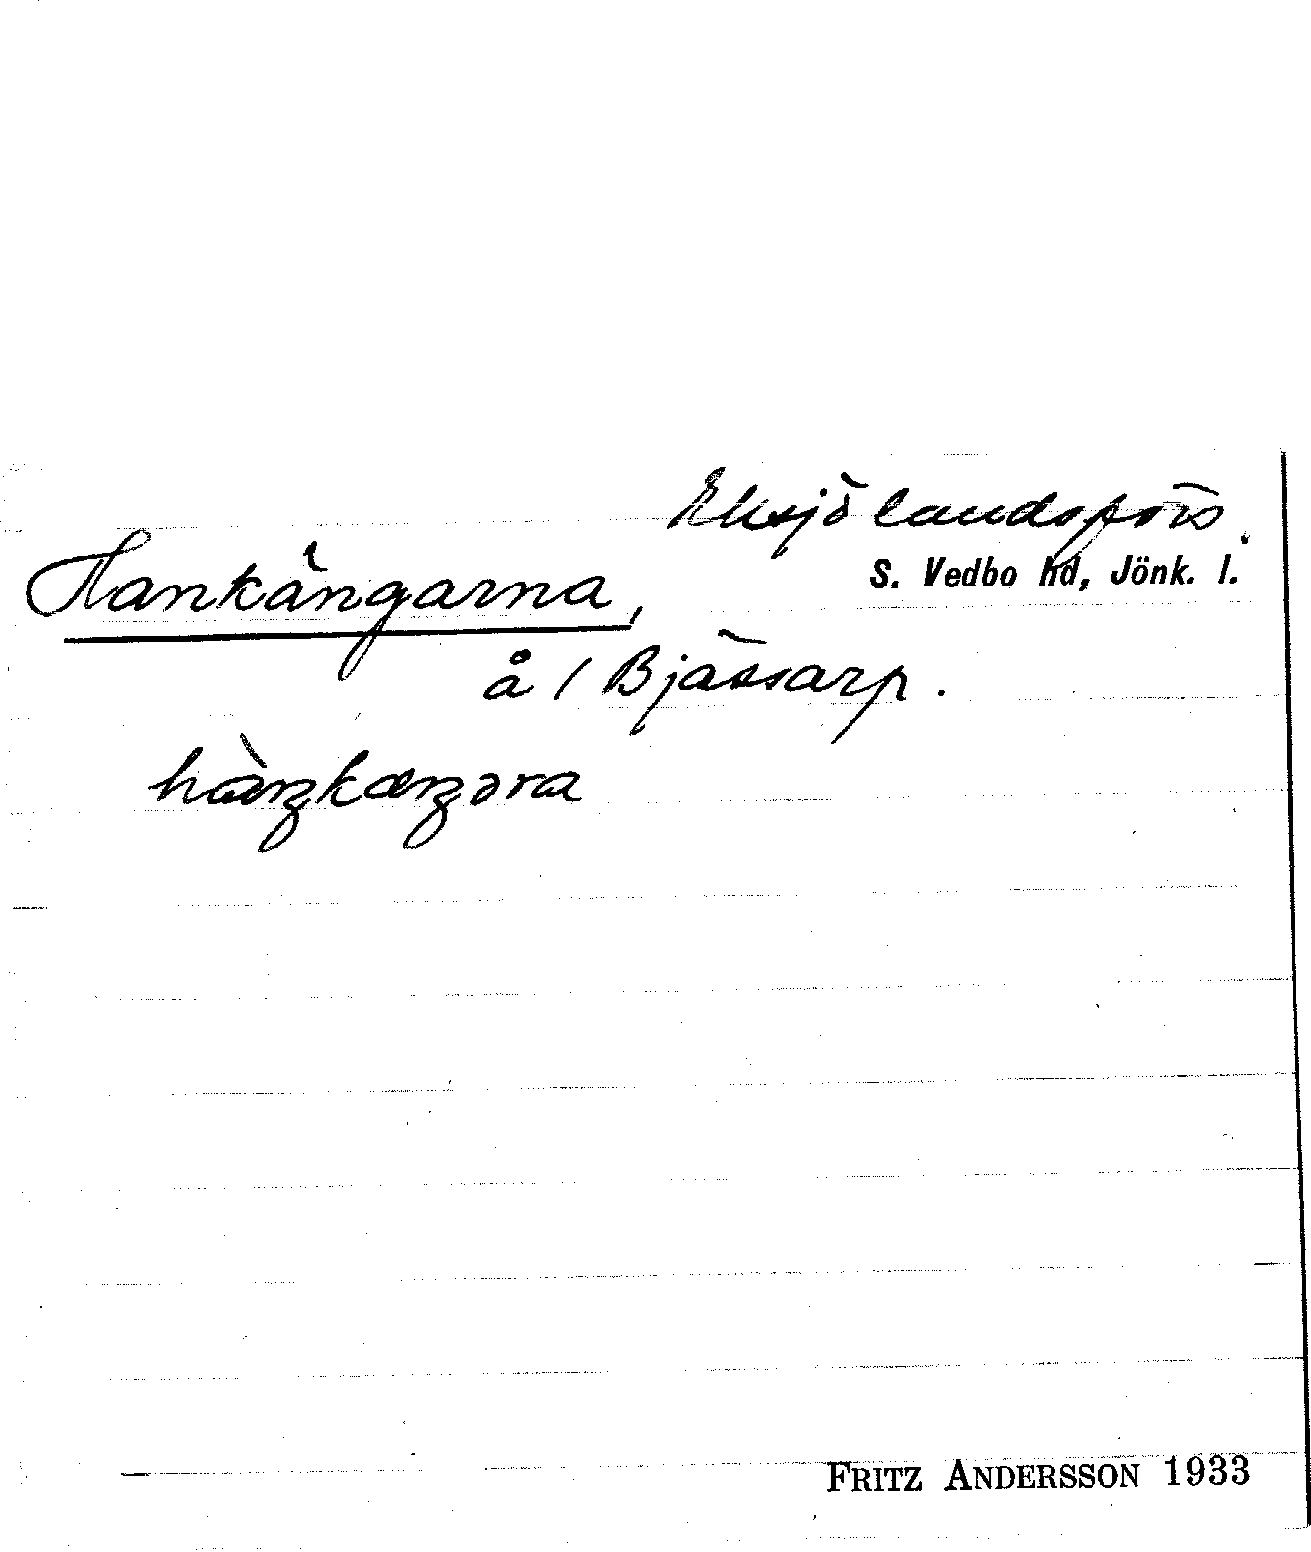 Eksjö landsförs.
Hankängarna,
S. Vedbo hd, Jönk. l.
å / Bjässarp.
hàŋkæŋəra
FRITZ ANDERSSON 1933